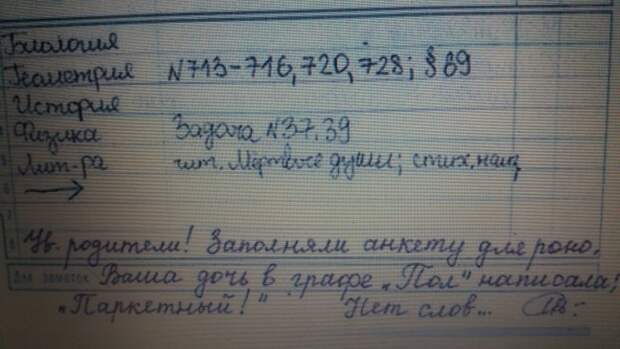 Биология
Геометрия N713-716, 720, 728; §89
История
Физика Задача N37.39
Лит-ра чит. Мертвые души; стих. наиз
Ув. родители! Заполняли анкету для роно.
Для заметок Ваша дочь в графе „Пол" написала;
„Паркетный!" Нет слов...